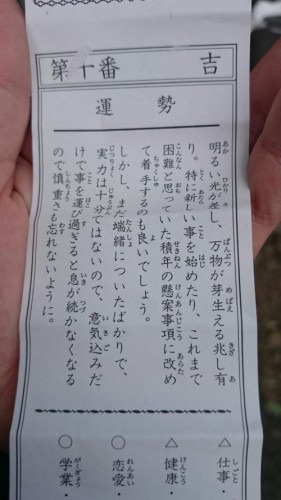 第十番 吉
運勢
明るい光が差し、万物が芽生える兆し有
り。特に新しい事を始めたり、これまで
困難と思っていた積年の懸案事項に改め
て着手するのも良いでしょう。
しかし、まだ端緒についたばかりで、
実力は十分ではないので、意気込みだ
けで事を運び過ぎると息が続かなくなる
ので慎重さも忘れないように。
△仕事・
△健康・
○恋愛・
○学業・